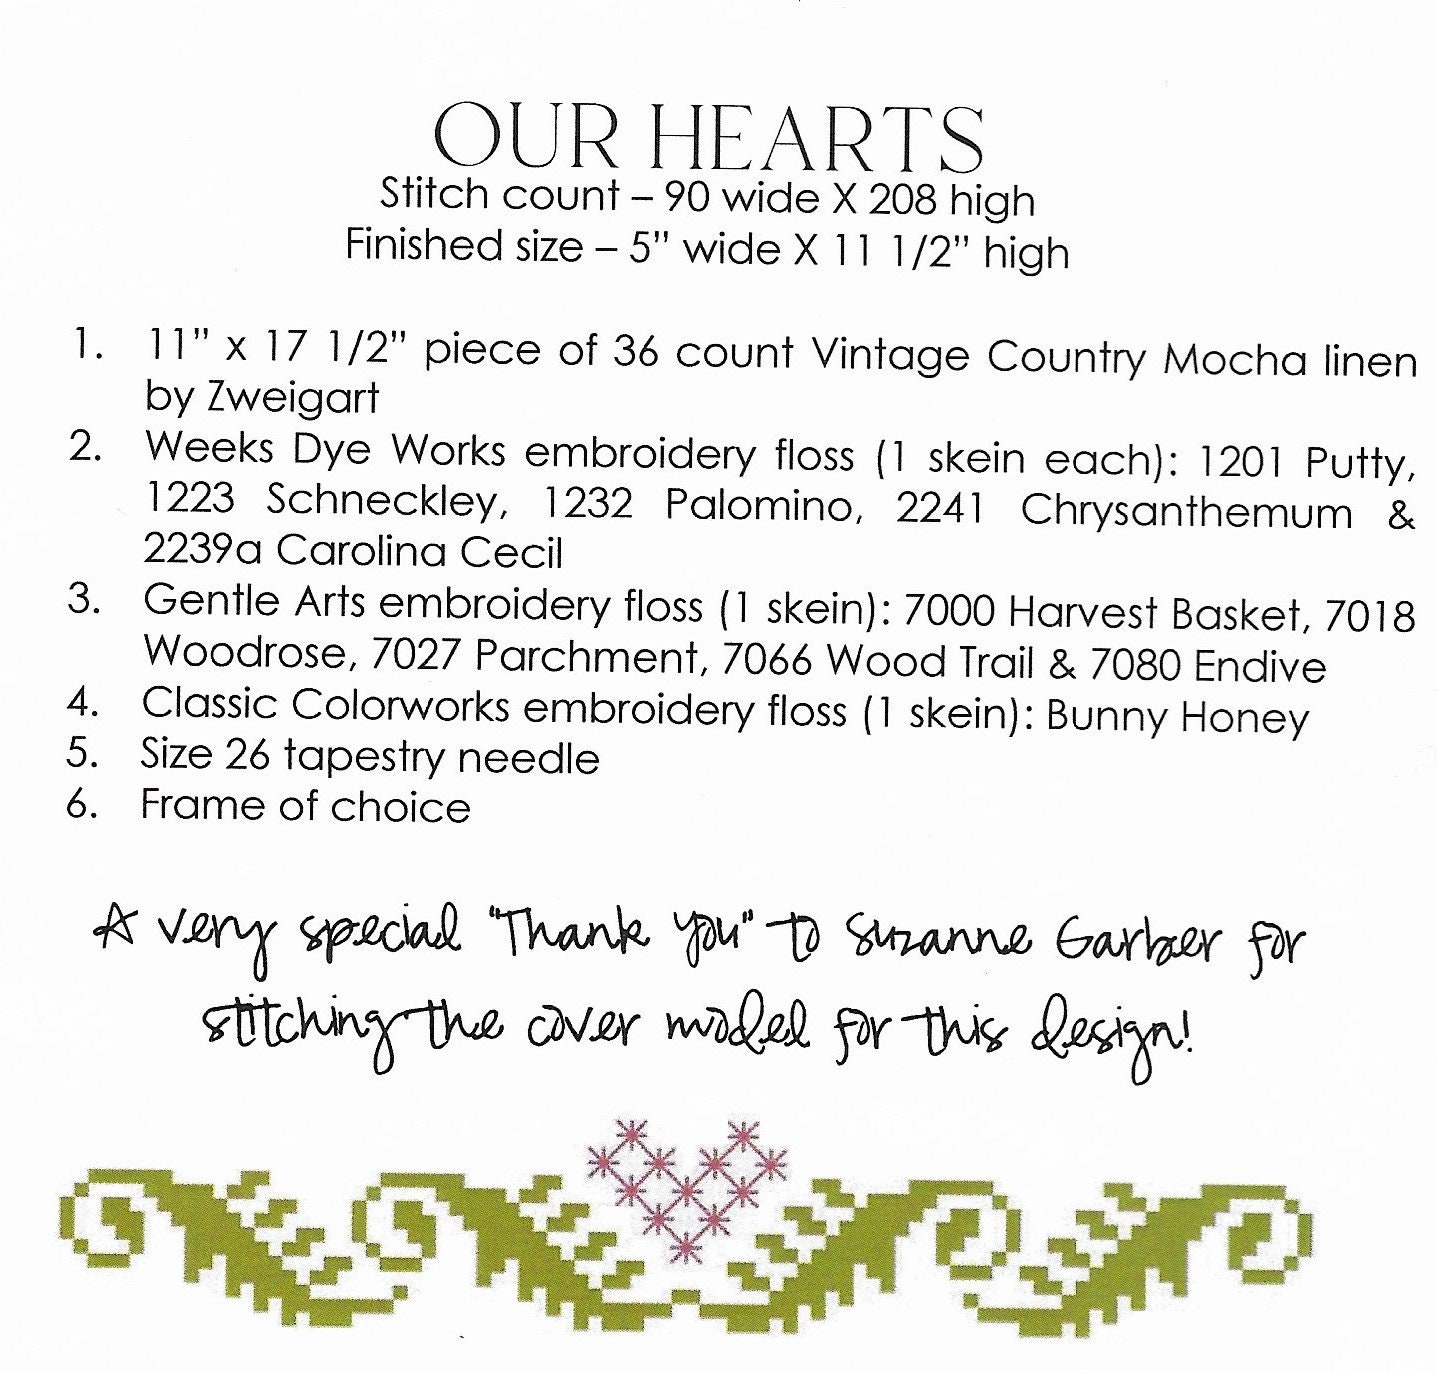 OUR HEARTS
Stitch count – 90 wide X 208 high
Finished size – 5" wide X 11 1/2" high
1. 11" x 17 1/2" piece of 36 count Vintage Country Mocha linen
by Zweigart
2. Weeks Dye Works embroidery floss (1 skein each): 1201 Putty,
1223 Schneckley, 1232 Palomino, 2241 Chrysanthemum &
2239a Carolina Cecil
3. Gentle Arts embroidery floss (1 skein): 7000 Harvest Basket, 7018
Woodrose, 7027 Parchment, 7066 Wood Trail & 7080 Endive
4. Classic Colorworks embroidery floss (1 skein): Bunny Honey
5. Size 26 tapestry needle
6. Frame of choice
A very special "Thank you" to Suzanne Garber for
stitching the cover model for this design!